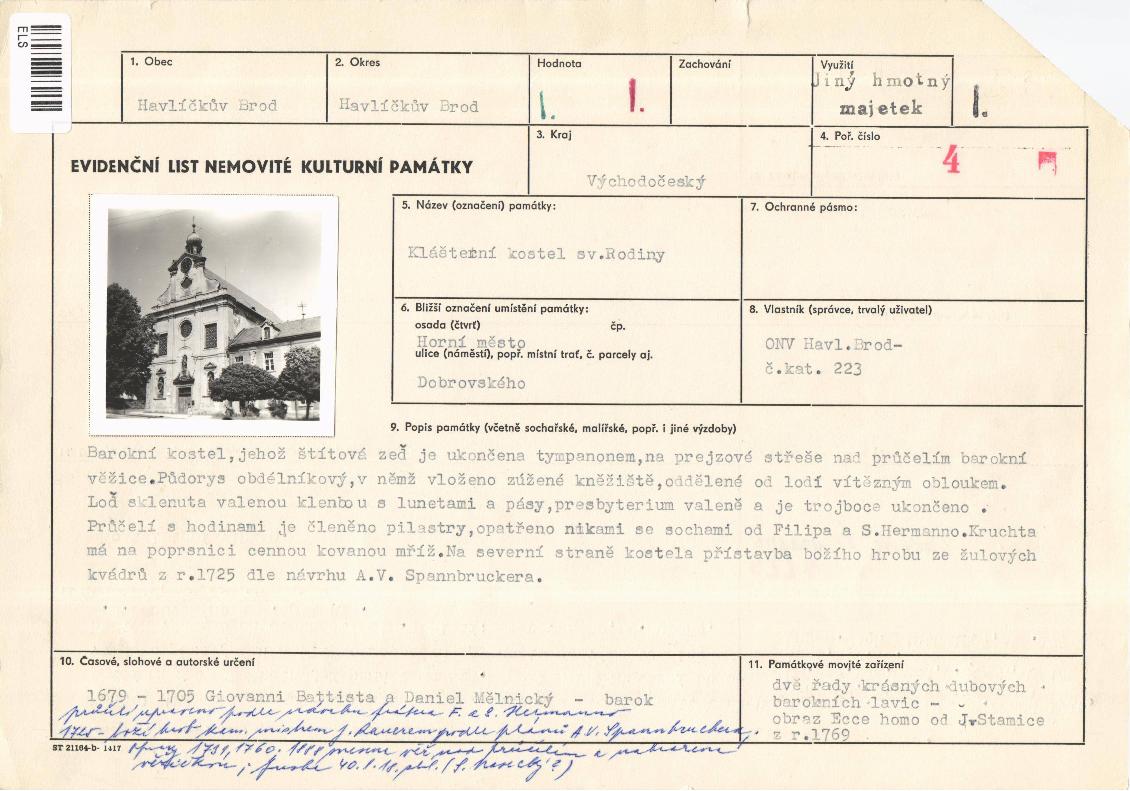 ELS
1. Obec
2. Okres
Hodnota
Zachování
Využití
Havlíčkův Brod
Havlíčkův Brod
1.
1.
Jiný hmotný
majetek
1.
3. Kraj
4. Poř. číslo
EVIDENČNÍ LIST NEMOVITÉ KULTURNÍ PAMÁTKY
Východočeský
4
5. Název (označení) památky:
7. Ochranné pásmo:
Klášterní kostel sv.Rodiny
6. Bližší označení umístění památky:
8. Vlastník (správce, trvalý uživatel)
osada (čtvrť) čp.
Horní město
ONV Havl.Brod-
ulice (náměstí), popř. místní trať, č. parcely aj.
č.kat. 223
Dobrovského
9. Popis památky (včetně sochařské, malířské, popř. i jiné výzdoby)
Barokní kostel,jehož štítová zeď je ukončena tympanonem,na prejzové střeše nad průčelím barokní
věžice.Půdorys obdélníkový,v němž vloženo zúžené kněžiště,oddělené od lodí vítězným obloukem.
Loď sklenuta valenou klenbou s lunetami a pásy,presbyterium valeně a je trojboce ukončeno .
Průčelí s hodinami je členěno pilastry,opatřeno nikami se sochami od Filipa a S.Hermanno.Kruchta
má na poprsnici cennou kovanou mříž.Na severní straně kostela přístavba božího hrobu ze žulových
kvádrů z r.1725 dle návrhu A.V. Spannbruckera.
10. Časové, slohové a autorské určení
11. Památkové movité zařízení
1679 - 1705 Giovanni Battista a Daniel Mělnický - barok
dvě řady krásných dubových
barokních lavic -
obraz Ecce homo od J.Stamice
z r.1769
průčelí upraveno podle návrhu frátra F. a S. Hermanno
1725 - boží hrob kam. mistrem J. Bauerem podle plánů A.V. Spannbruckera,
ST 21164-b- 1417
Opravy 1739, 1760. 1888 menou věž nad průčelím a nahrazeno
věžičkou;